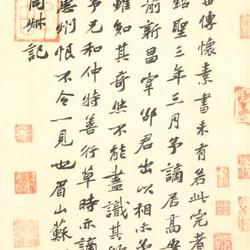 世傳懷素書未有若此完者
紹聖三年三月予謫居高安
前新昌宰邵君出以相示予
雖知其奇然不能盡識其
予兄和仲特善行草時亦謫
惠州恨不令一見也眉山蘇
同叔記